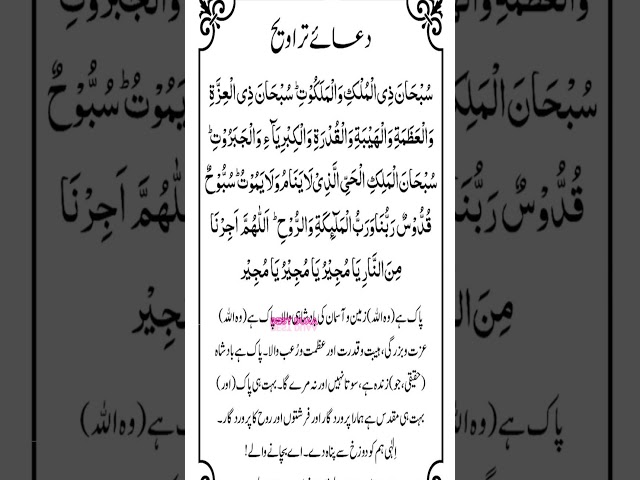 دعائے تراویح
سُبْحَانَ ذِی الْمُلْکِ وَالْمَلَکُوْتِ ؕ سُبْحَانَ ذِی الْعِزَّةِ
وَالْعَظَمَةِ وَالْهَيْبَةِ وَالْقُدْرَةِ وَالْکِبْرِيَآءِ وَالْجَبَرُوْتِ ؕ
سُبْحَانَ الْمَلِکِ الْحَیِّ الَّذِیْ لَا يَنَامُ وَلَا يَمُوْتُ ؕ سُبُّوْحٌ
قُدُّوْسٌ رَبُّنَا وَرَبُّ الْمَلٰٓئِکَةِ وَالرُّوْحِ ؕ اَللّٰهُمَّ اَجِرْنَا
مِنَ النَّارِ يَا مُجِيْرُ يَا مُجِيْرُ يَا مُجِيْر
پاک ہے (وہ اللہ) زمین و آسمان کی بادشاہی والا۔ پاک ہے (وہ اللہ)
عزت و بزرگی، ہیبت و قدرت اور عظمت و رُعب والا۔ پاک ہے بادشاہ
(حقیقی، جو) زندہ ہے، سوتا نہیں اور نہ مرے گا۔ بہت ہی پاک (اور)
بہت ہی مقدس ہے ہمارا پروردگار اور فرشتوں اور روح کا پروردگار۔
اِلٰہی ہم کو دوزخ سے پناہ دے۔ اے بچانے والے!